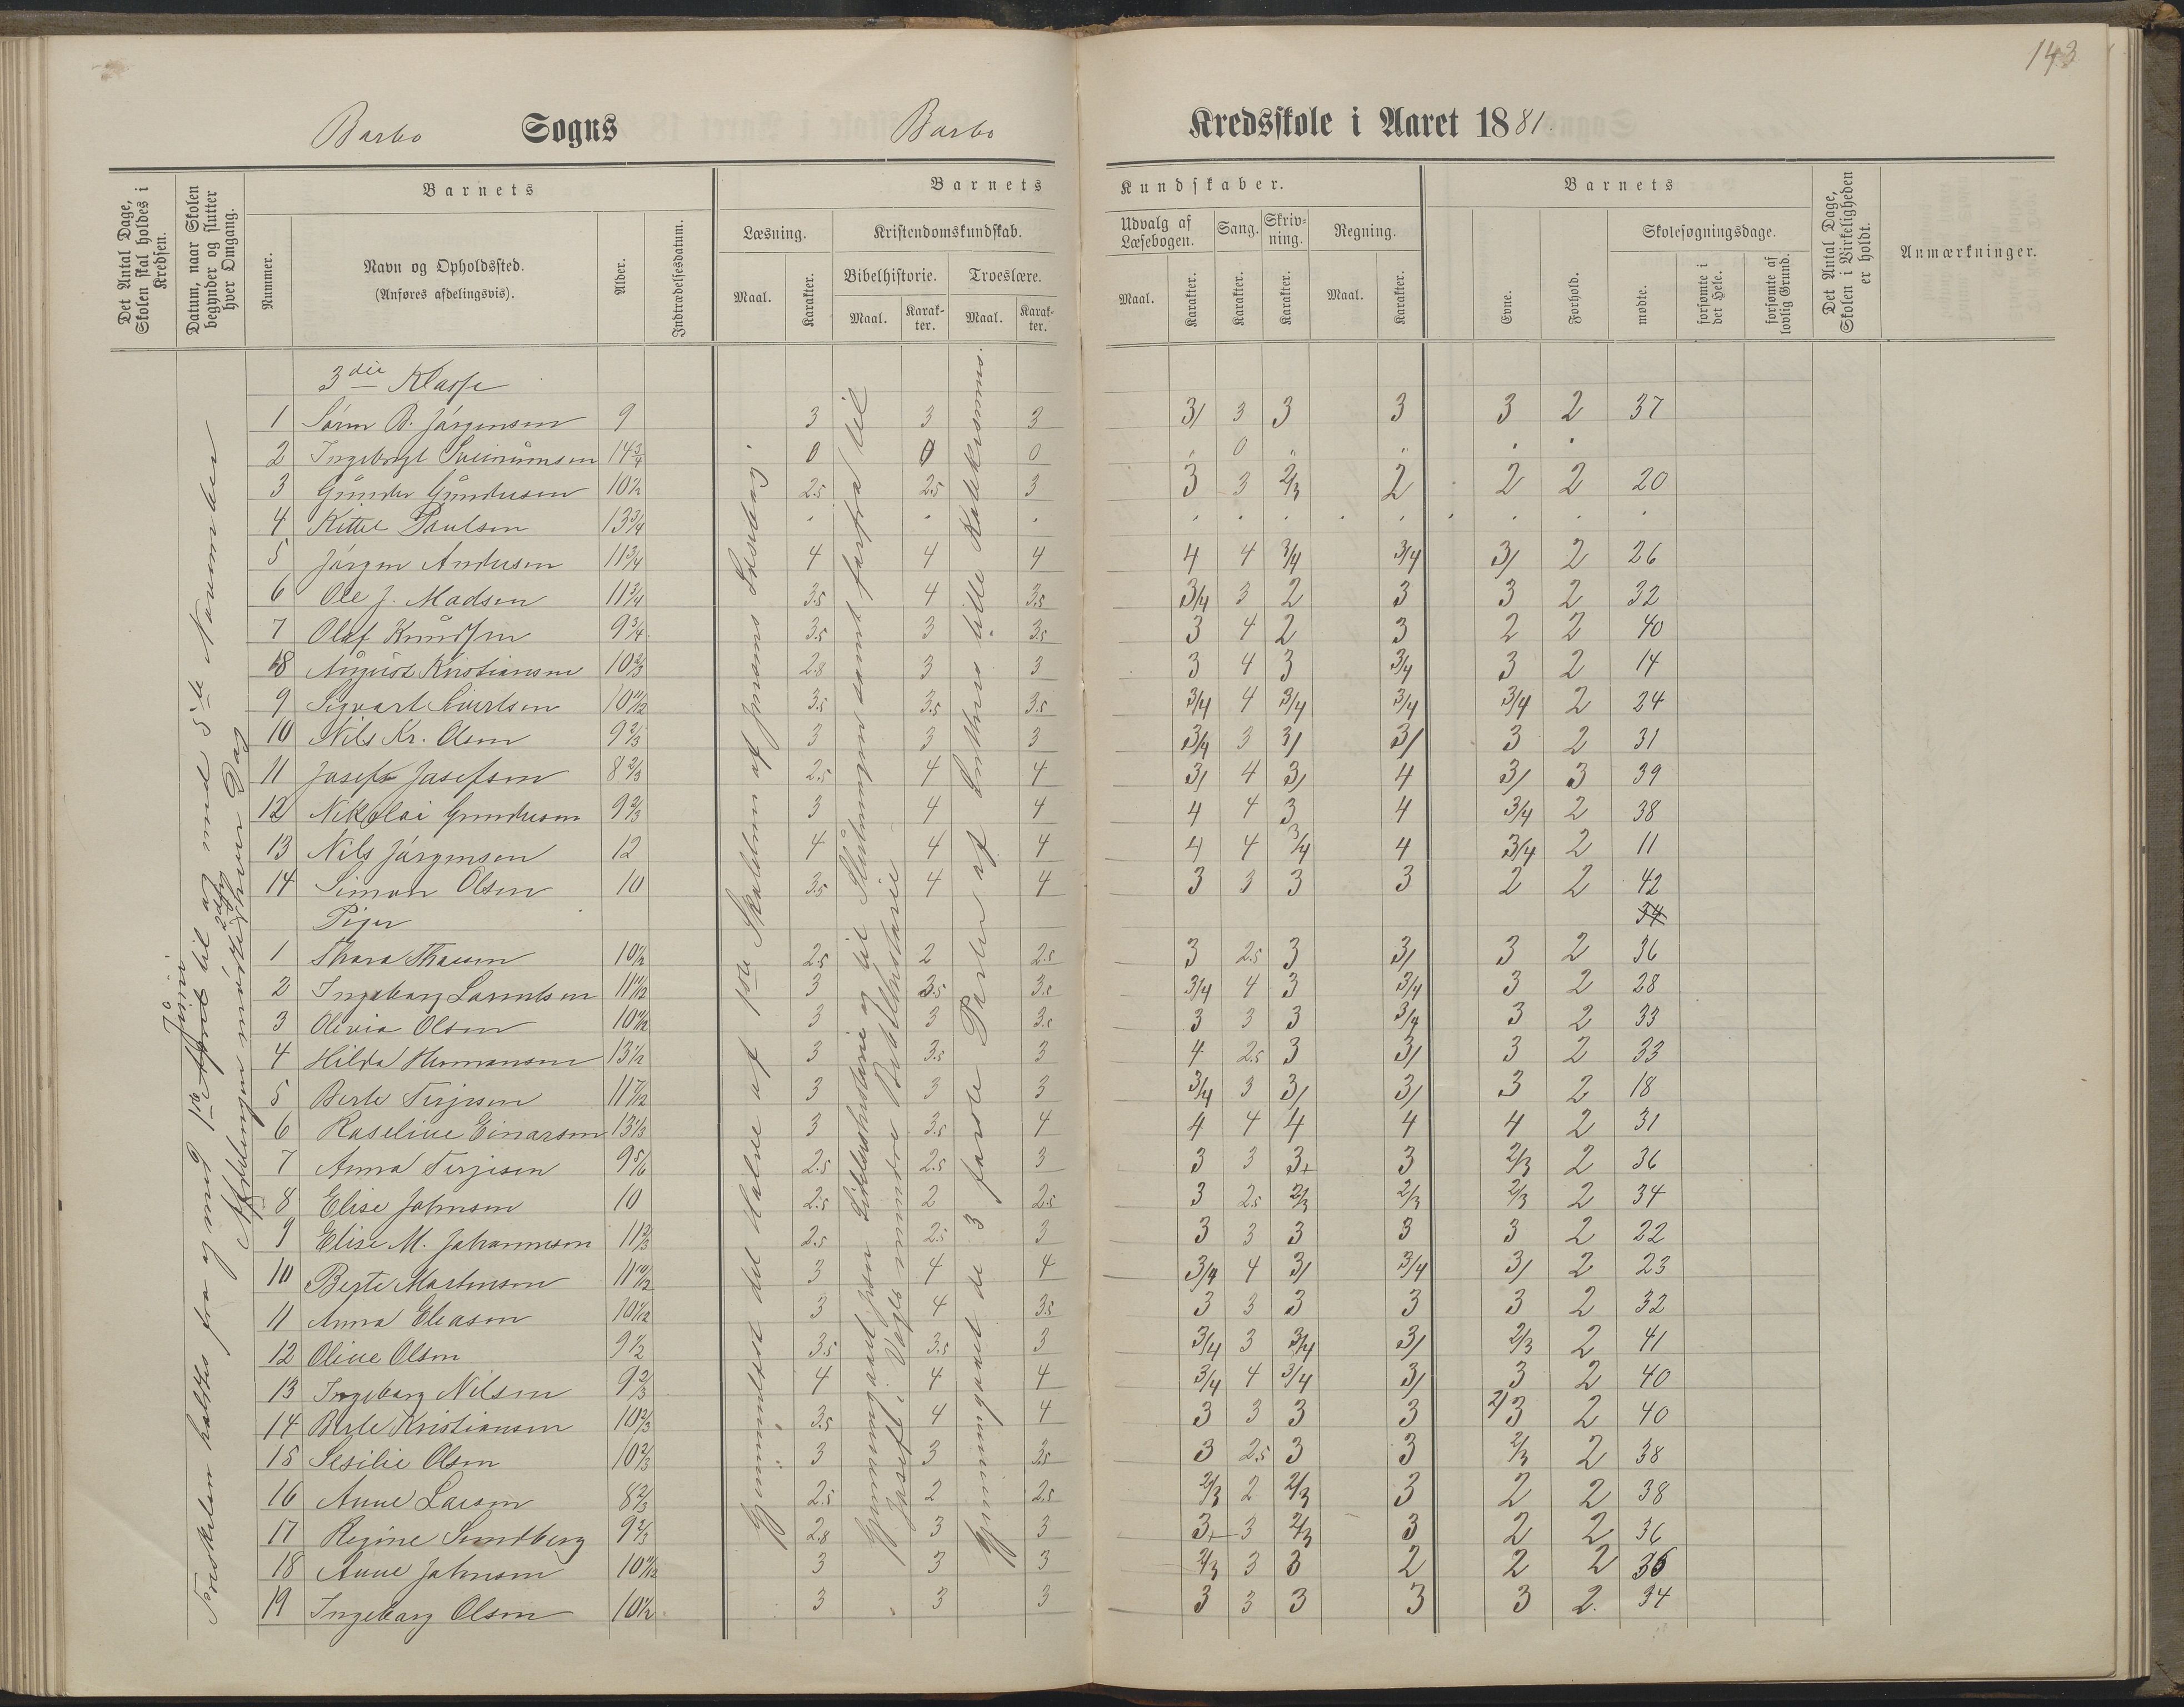 143
Barbo Sogns Barbo Kredsskole i Aaret 1881.
Det Antal Dage, Skolen skal holdes i Kredsen.
Datum, naar Skolen begynder og slutter hver Omgang.
Barnets
Nummer.
Navn og Opholdssted.
(Anføres afdelingsvis).
Alder.
Indtrædelsesdatum.
Barnets Kundskaber.
Læsning.
Maal. Karakter.
Kristendomskundskab.
Bibelhistorie. Troeslære.
Maal. Karakter. Maal. Karakter.
Udvalg af Læsebogen. Sang. Skrivning. Regning.
Maal. Karakter. Karakter. Karakter. Maal. Karakter.
Barnets
Evne. Forhold.
Skolesøgningsdage.
mødte. forsømte i det Hele. forsømte af lovlig Grund.
Det Antal Dage, Skolen i Virkeligheden er holdt.
Anmærkninger.
3die Klasse
1 Søren B. Jørgensen 9 3 3 3 3/ 3 3 3 3 2 37
2 Ingebregt 14 3/4 0 0 0 " 0 " " . .
3 Gunder Gundersen 10 1/2 2.5 2.5 3 3 3 2/3 2 2 2 20
4 Kittel Paulsen 13 3/4 . . . . . . . . . .
5 Jørgen Andersen 11 3/4 4 4 4 4 4 3/4 3/4 3/ 2 26
6 Ole J. Madsen 11 3/4 3.5 4 3.5 3/4 3 2 3 3 2 32
7 Olaf Knudsen 9 3/4 3.5 3 3.5 3 4 2 3 2 2 40
8 August Kristiansen 10 2/3 2.8 3 3 3 4 3 3/4 3 2 14
9 Sigvart Sivertsen 10 11/12 3.5 3.5 3.5 3/4 4 3/4 3/4 3/4 2 24
10 Nils Kr. Olsen 9 2/3 3 3 3 3/4 3 3/ 3/ 3 2 31
11 Josef Josefsen 8 2/3 2.5 4 4 3/ 4 3/ 4 3/ 3 39
12 Nikolai Gundersen 9 2/3 3 4 4 4 4 3 4 3/4 2 38
13 Nils Jørgensen 12 4 4 4 4 4 3/4 4 3/4 2 11
14 Simon Olsen 10 3.5 4 4 3 3 3 3 2 2 42
Piger 34
1 Thara 10 1/2 2.5 2 2.5 3 2.5 3 3/ 3 2 36
2 Ingeborg Larentsen 11 11/12 3 3.5 3.5 3/4 4 3 3/4 3 2 28
3 Olivia Olsen 3 3 3.5 3 3 3 3/4 3 2 33
4 Hilda Hermansen 13 1/2 3 3.5 3 4 2.5 3 3/ 3 2 33
5 Berte Terjesen 11 7/12 3 3 3 3/4 3 3/ 3/ 3 2 18
6 Roseline Einarsen 13 1/3 3 3.5 4 4 4 4 4 4 2 31
7 Anna Terjesen 9 5/6 2.5 2.5 3 3 3 3+ 3 2/3 2 36
8 Elise Johnsen 10 2.5 2 2.5 3 2.5 2/3 2/3 2/3 2 34
9 Elise M. Johannesen 11 2/3 2.5 2.5 3 3 3 3 3 3 2 22
10 Berte Martinsen 3 4 4 3/4 4 3/ 3/4 3/ 2 23
11 Anna Eleasen 3 4 3.5 3 3 3 3 3 2 32
12 Oline Olsen 9 1/2 3.5 3.5 3 3/4 3 3/4 3/ 2/3 2 41
13 Ingeborg Nilsen 9 2/3 4 4 4 3/4 4 3/4 3/ 3 2 40
14 Berte Kristiansen 10 2/3 3.5 4 4 3 3 3 3 2/3 2 40
15 Sesilie Olsen 10 2/3 3 3 3.5 3 2.5 3 3 2/3 2 38
16 Anne Larsen 8 2/3 2.5 2 2.5 2/3 2 2/3 3 2 2 38
17 Regine Sundberg 9 2/3 2.8 3 3 3+ 3 2/3 3 2 2 36
18 Anne Johnsen 3 3 3 2/3 3 3 2 2 2 36
19 Ingeborg Olsen 10 1/2 3 3 3 3 3 3 3 3 2 34
Forskolen holdtes fra og med 1ste April Juni til og med 5te November
Afdelingen mødte hver Dag
Gjennemlæst det Halve af 1ste Skoletrin af Jensens Læsebog.
Gjennemgaaet de 3 første Parter af Luthers lille Katekismus.